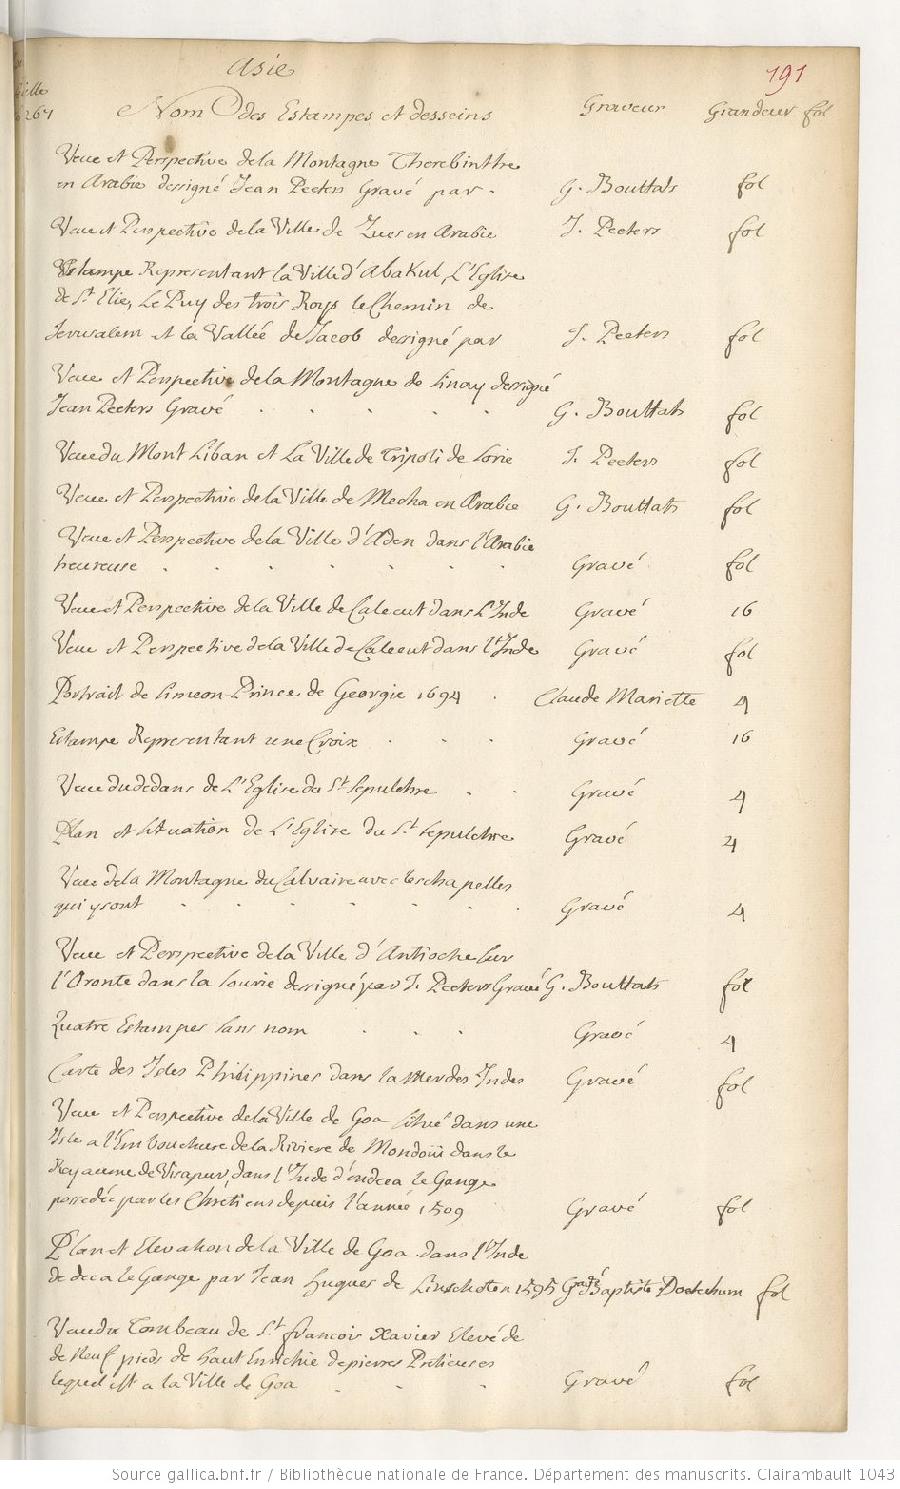 Asie
191
Nom des Estampes et desseins Graveur Grandeur fol
Veue et Perspective de la Montagne Therebinthe
en Arabie dessigné Jean Peeters Gravé par G. Bouttats fol
Veue et Perspective de la Ville de Zues en Arabie J. Peeters fol
Estampe Representant la Ville d'Abakul, L'Eglise
de St Elie, Le Puy des trois Roys le Chemin de
Jerusalem et la Vallée de Jacob dessigné par J. Peeters fol
Veue et Perspective de la Montagne de Sinay dessigné
Jean Peeters Gravé . . . . . G. Bouttats fol
Veue du Mont Liban et La Ville de Tripoli de Sorie J. Peeters fol
Veue et Perspective de la Ville de Mecha en Arabie G. Bouttats fol
Veue et Perspective de la Ville d'Aden dans l'Arabie
heureuse . . . . . . . Gravé fol
Veue et Perspective de la Ville de Calecut dans L'Inde Gravé 16
Veue et Perspective de la Ville de Calecut dans l'Inde Gravé fol
Portrait de Simeon Prince de Georgie 1694 . Claude Mariette 4
Estampe Representant une Croix . . . Gravé 16
Veue du dedans de L'Eglise du St Sepulchre . . Gravé 4
Plan et situation de L'Eglise du St Sepulchre Gravé 4
Veue de la Montagne du Calvaire avec les chapelles
qui y sont . . . . . . Gravé 4
Veue et Perspective de la Ville d'Antioche sur
l'Oronte dans la Sourie dessigné par J. Peeters Gravé G. Bouttats fol
Quatre Estampes sans nom . . . Gravé 4
Carte des Isles Philippines dans la Mer des Indes Gravé fol
Veue et Perspective de la Ville de Goa situé dans une
Isle a l'Embouchure de la Riviere de Mondoüi dans le
Royaume de Visapur, dans l'Inde d'endeca le Gange
possedée par les Chretiens depuis l'année 1509 Gravé fol
Plan et Elevation de la Ville de Goa dans l'Inde
de deca le Gange par Jean Hugues de Linschoten 1595 Gravé Baptiste Doetechum fol
Veue du Tombeau de St francois Xavier Elevé de
de Neuf pieds de haut Enrichie de pierres Pretieuses
lequel est a la Ville de Goa . . . Gravé fol
Source gallica.bnf.fr / Bibliothèque nationale de France. Département des manuscrits. Clairambault 1043